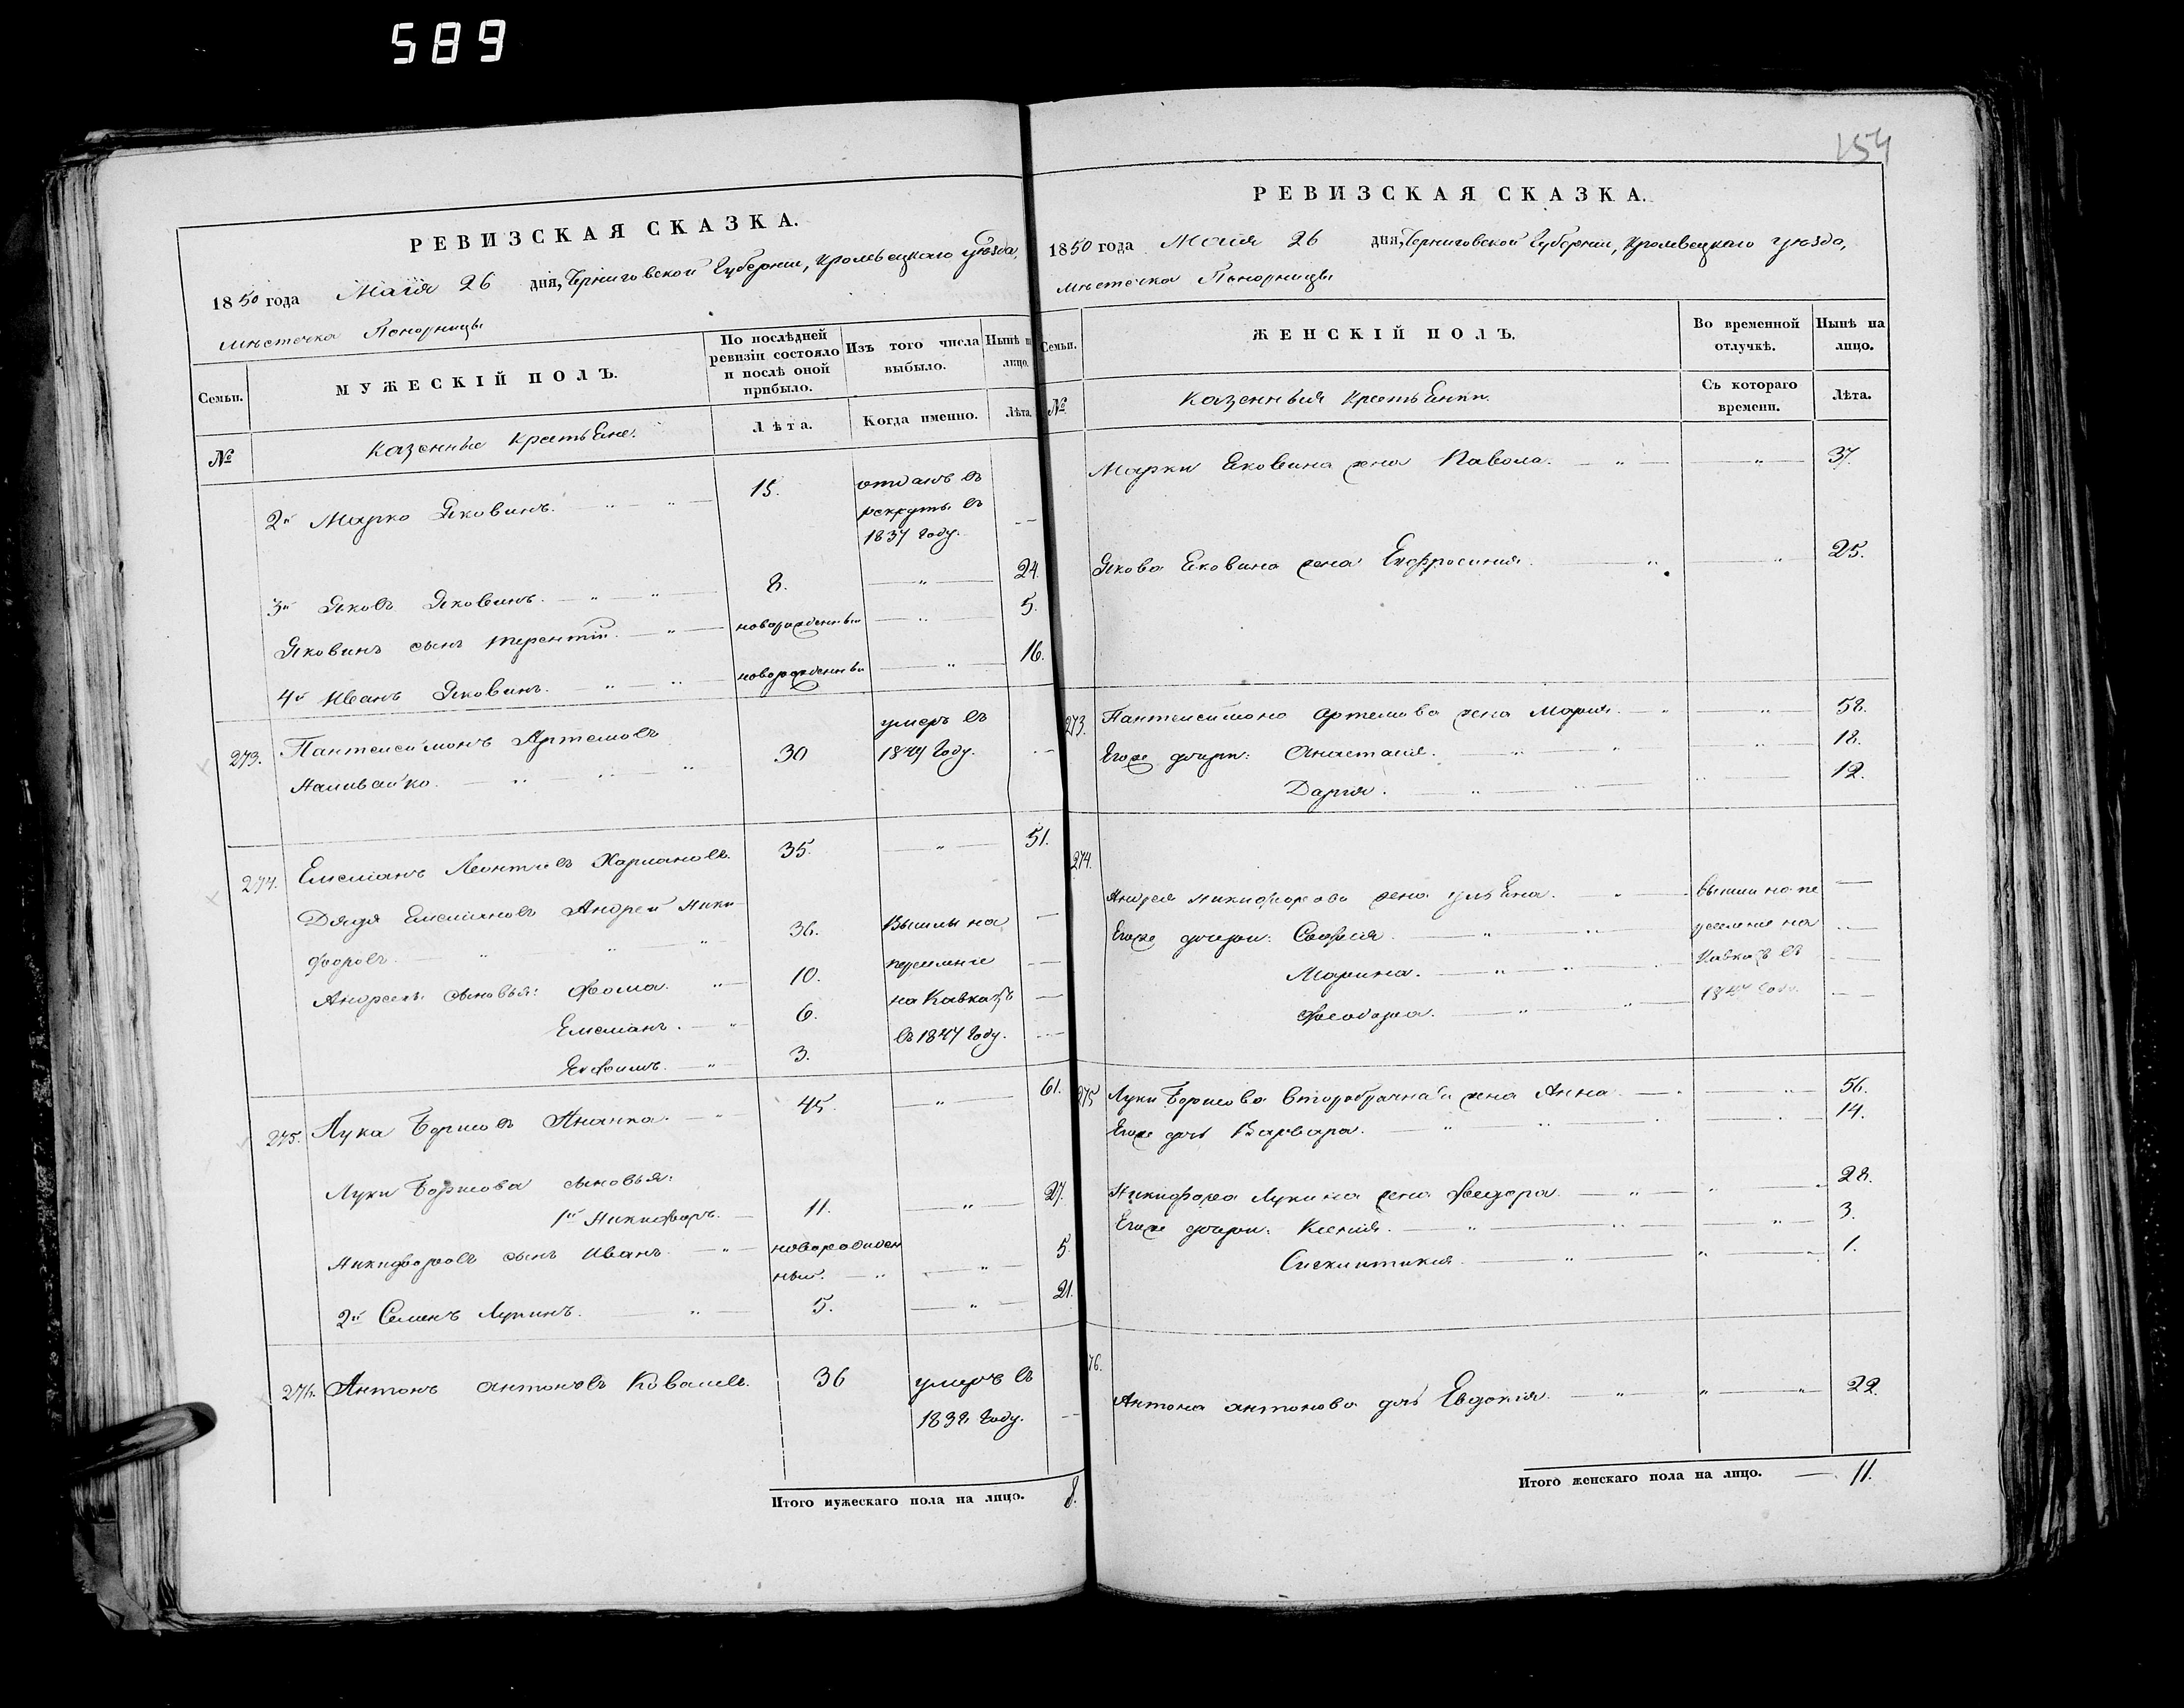 589
154
РЕВИЗСКАЯ СКАЗКА.
1850 года Маія 26 дня, Черниговской Губерніи, Кролевецкаго уѣзда,
мѣстечка Понорницы
Семьи.
МУЖЕСКІЙ ПОЛЪ.
По послѣдней ревизіи состояло и послѣ оной прибыло.
Изъ того числа выбыло.
Нынѣ на лицо.
№
Казенные крестьяне.
Лѣта.
Когда именно.
Лѣта.
2й Марко Яковинъ. 15. отданъ въ
рекруты въ
1837 году.
3й Яковъ Яковинъ. 8. 24.
Яковинъ сынъ Терентій. новорожденный 5.
4й Иванъ Яковинъ. новорожденный 16.
273. Пантелеймонъ Артемовъ умеръ въ
Наливайко. 30 1849 году.
274. Емельянъ Леонтіевъ 35. 51.
Дядя Емельяновъ Андрей Ники-
форовъ. 36. Вышлы на
Андреевы сыновья: Фома. 10. переселеніе
Емельянъ. 6. на Кавказъ
Евфимъ. 3. въ 1847 году.
275. Лука Борисовъ Ананка. 45. 61.
Луки Борисова сыновья:
1й Никифоръ. 11. 27.
Никифоровъ сынъ Иванъ. новорожден
ный. 5.
2й Семенъ Лукинъ. 5. 21.
276. Антонъ Антоновъ Ковалевъ. 36 умеръ въ
1838 году.
Итого мужескаго пола на лицо. 8.
РЕВИЗСКАЯ СКАЗКА.
1850 года Маія 26 дня, Черниговской Губерніи, Кролевецкаго уѣзда,
мѣстечка Понорницы
Семьи.
ЖЕНСКІЙ ПОЛЪ.
Во временной отлучкѣ.
Нынѣ на лицо.
№
Казенныя крестьянки.
Съ котораго времени.
Лѣта.
Марки Яковина жена Павола. 37.
Якова Яковина жена Евфросинія. 25.
273. Пантелеймона Артемова жена Марія. 58.
Егоже дочери: Анастасія. 18.
Дарія. 12.
274.
Андрея Никифорова жена Ульяна. вышли на пе
Егоже дочери: Софія. реселеніе на
Марина. Кавказъ въ
Феодора. 1847 году.
275 Луки Борисова второбрачная жена Анна. 56.
Егоже дочь Варвара. 14.
Никифора Лукина жена Феодора. 28.
Егоже дочери: Ксенія. 3.
1.
76.
Антона Антонова дочь Евдокія. 22.
Итого женскаго пола на лицо. 11.